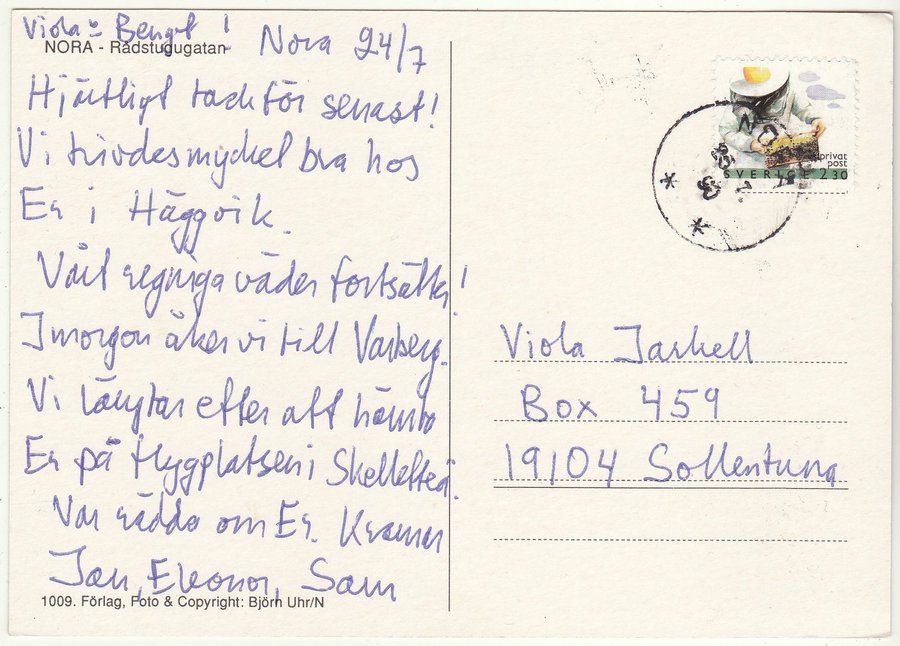 Viola o Bengt!
NORA - Rådstugugatan
Nora 24/7
Hjärtligt tack för senast!
Vi trivdes mycket bra hos
Er i Häggvik.
Vårt regniga väder fortsätter!
Imorgon åker vi till Varberg.
Vi längtar efter att hämta
Er på flygplatsen i Skellefteå.
Var rädda om Er. Kramar
Jan, Eleonor, Sam
1009. Förlag, Foto & Copyright: Björn Uhr/N
privat
post
SVERIGE 2.30
Viola Jarkell
Box 459
19104 Sollentuna